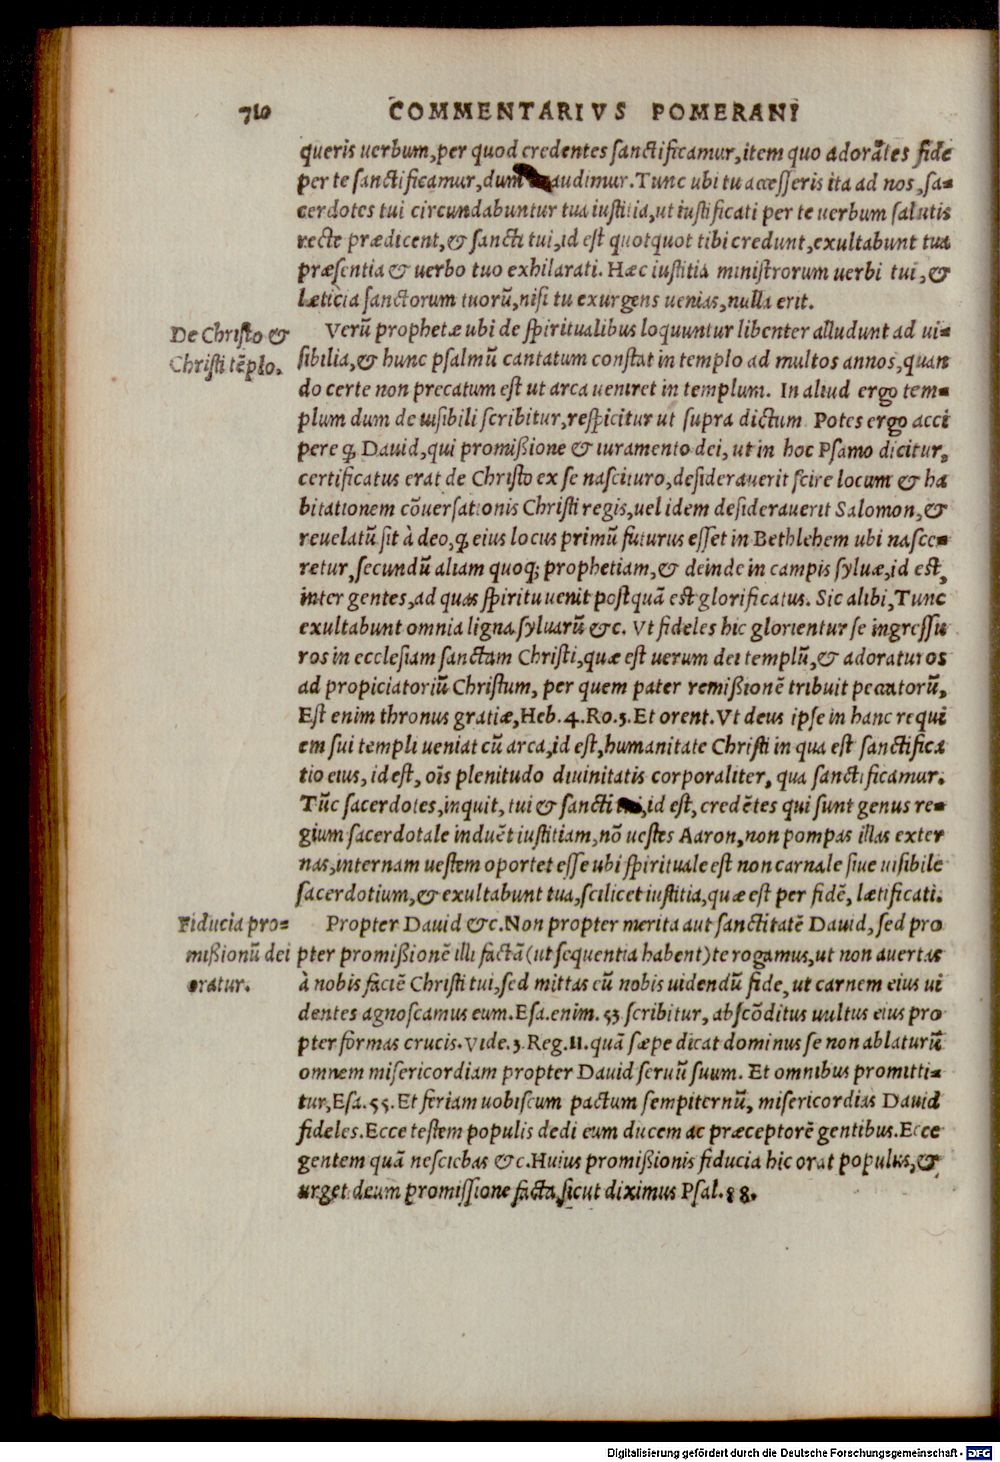 710 COMMENTARIVS POMERANI
queris uerbum, per quod credentes sanctificamur, item quo adorātes fide
per te sanctificamur, dum audimur. Tunc ubi tu accesseris ita ad nos, sa-
cerdotes tui circundabuntur tua iustitia, ut iustificati per te uerbum salutis
recte prædicent, & sancti tui, id est quotquot tibi credunt, exultabunt tua
præsentia & uerbo tuo exhilarati. Hæc iustitia ministrorum uerbi tui, &
læticia sanctorum tuorū, nisi tu exurgens uenias, nulla erit.
De Christo &
Christi tēplo.
Verū prophetæ ubi de spiritualibus loquuntur libenter alludunt ad ui-
sibilia, & hunc psalmū cantatum constat in templo ad multos annos, quan
do certe non precatum est ut arca ueniret in templum. In aliud ergo tem-
plum dum de uisibili scribitur, respicitur ut supra dictum Potes ergo acci
pere ꝙ Dauid, qui promißione & iuramento dei, ut in hoc Psamo dicitur,
certificatus erat de Christo ex se nascituro, desiderauerit scire locum & ha
bitationem cōuersationis Christi regis, uel idem desiderauerit Salomon, &
reuelatū sit à deo, ꝙ eius locus primū futurus esset in Bethlehem ubi nasce-
retur, secundū aliam quoq; prophetiam, & deinde in campis syluæ, id est,
inter gentes, ad quas spiritu uenit postquā est glorificatus. Sic alibi, Tunc
exultabunt omnia ligna syluarū &c. Vt fideles hic glorientur se ingressu
ros in ecclesiam sanctam Christi, quæ est uerum dei templū, & adoraturos
ad propiciatoriū Christum, per quem pater remißionē tribuit peccatorū,
Est enim thronus gratiæ, Heb. 4. Ro. 3. Et orent. Vt deus ipse in hanc requi
em sui templi ueniat cū arca, id est, humanitate Christi in qua est sanctifica
tio eius, id est, oīs plenitudo diuinitatis corporaliter, qua sanctificamur.
Tūc sacerdotes, inquit, tui & sancti id est, credētes qui sunt genus re-
gium sacerdotale induēt iustitiam, nō uestes Aaron, non pompas illas exter
nas, internam uestem oportet esse ubi spirituale est non carnale siue uisibile
sacerdotium, & exultabunt tua, scilicet iustitia, quæ est per fidē, lætificati.
Fiducia pro-
mißionū dei
oratur.
Propter Dauid &c. Non propter merita aut sanctitatē Dauid, sed pro
pter promißionē illi factā (ut sequentia habent) te rogamus, ut non auertas
à nobis faciē Christi tui, sed mittas eū nobis uidendū fide, ut carnem eius ui
dentes agnoscamus eum. Esa. enim. 53 scribitur, abscōditus uultus eius pro
pter formas crucis. Vide. 3. Reg. 11. quā sæpe dicat dominus se non ablaturū
omnem misericordiam propter Dauid seruū suum. Et omnibus promitti-
tur, Esa. 55. Et feriam uobiscum pactum sempiternū, misericordias Dauid
fideles. Ecce testem populis dedi eum ducem ac præceptorē gentibus. Ecce
gentem quā nesciebas &c. Huius promißionis fiducia hic orat populus, &
urget deum promissione facta, sicut diximus Psal. 88.
Digitalisierung gefördert durch die Deutsche Forschungsgemeinschaft - DFG